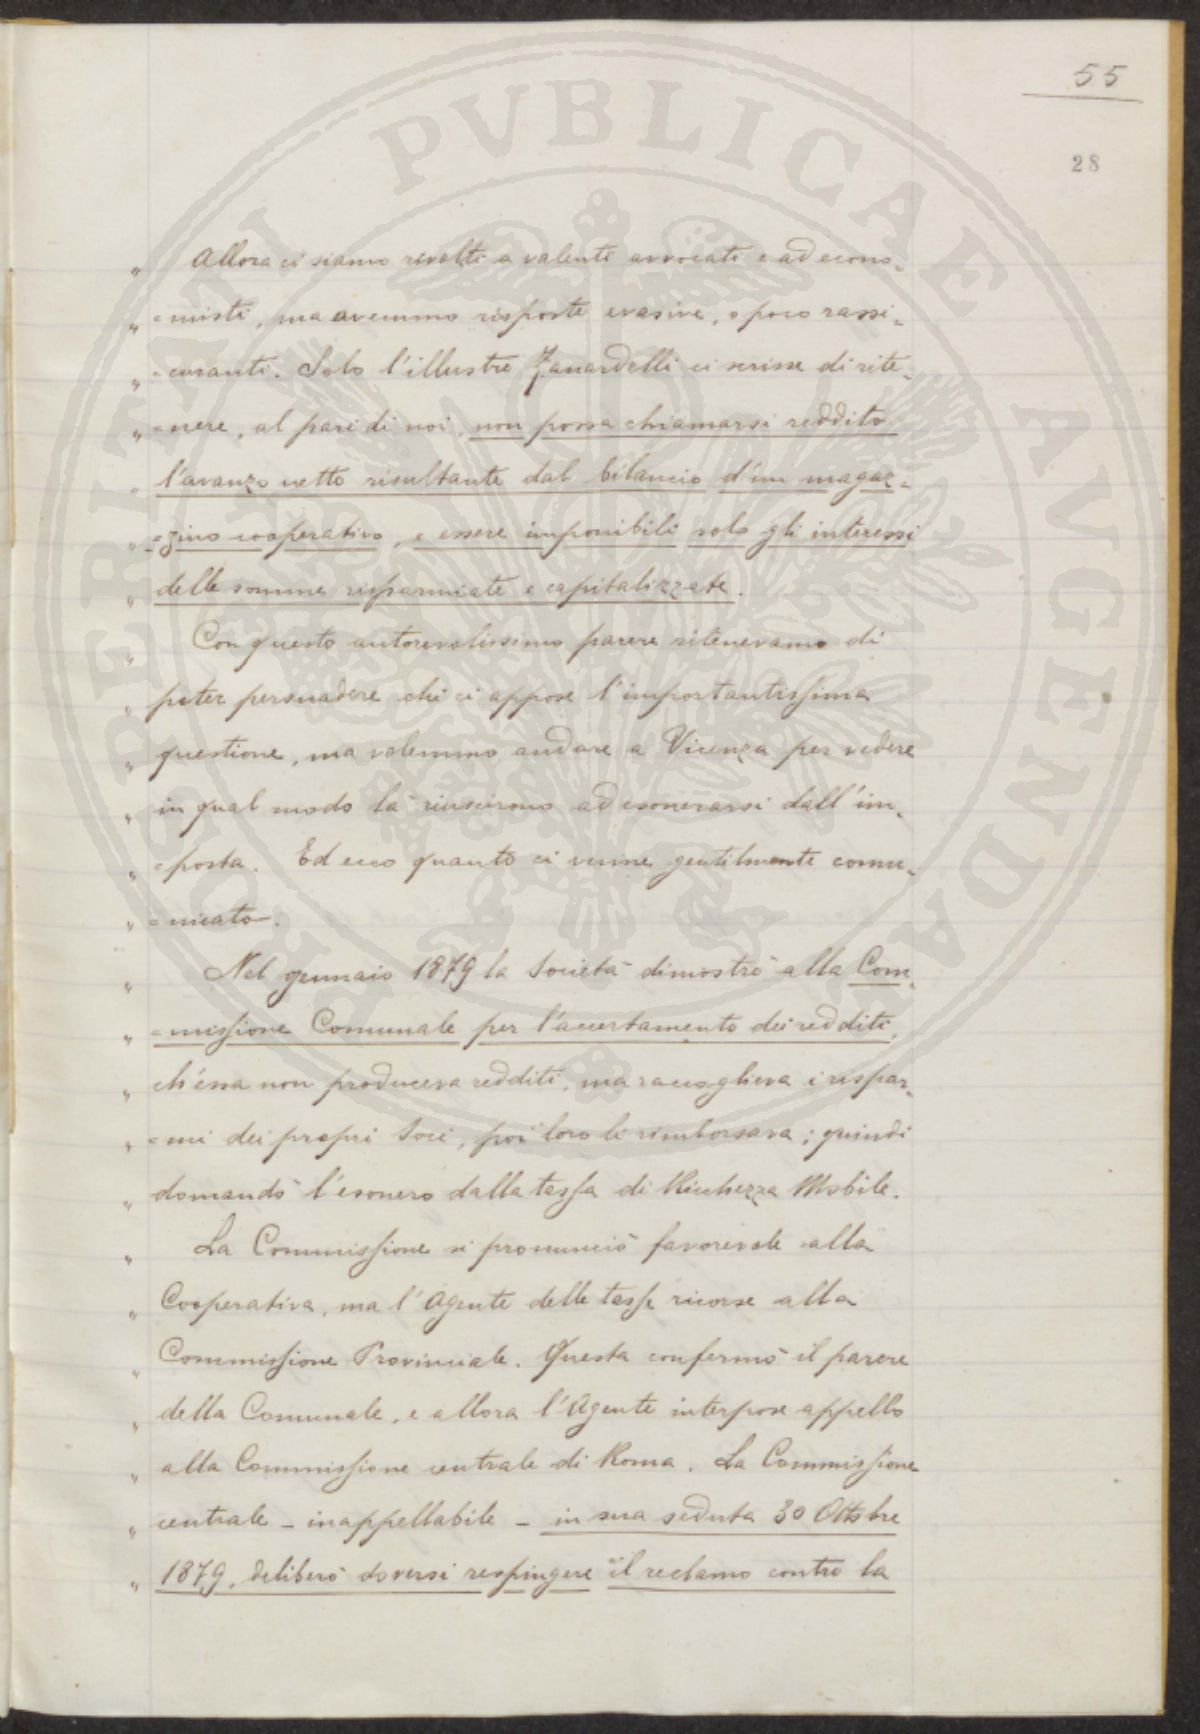 55
28
„ Allora ci siamo rivolti a valenti avvocati e ad econo-
„ =misti, ma avemmo risposte evasive, o poco rassi-
„ =curanti. Solo l'illustre Zanardelli ci scrisse di rite-
„ =nere, al pari di noi, non possa chiamarsi reddito
„ l'avanzo netto risultante dal bilancio d'un magaz-
„ =zino cooperativo, e essere imponibili solo gli interessi
„ delle somme risparmiate e capitalizzate.
„ Con questo autorevolissimo parere ritenevamo di
„ poter persuadere chi ci appose l'importantissima
„ questione, ma volemmo andare a Vicenza per vedere
„ in qual modo là riuscirono ad esonerarsi dall'im-
„ =posta. Ed ecco quanto ci venne gentilmente comu-
„ =nicato.
„ Nel gennaio 1879 la Società dimostrò alla Com-
„ =missione Comunale per l'accertamento dei redditi,
„ ch'essa non produceva redditi, ma raccoglieva i rispar-
„ =mi dei propri Soci, poi loro li rimborsava; quindi
„ domandò l'esonero dalla tassa di Ricchezza Mobile.
„ La Commissione si pronunciò favorevole alla
„ Cooperativa, ma l'Agente delle tasse ricorse alla
„ Commissione Provinciale. Questa confermò il parere
„ della Comunale, e allora l'Agente interpose appello
„ alla Commissione centrale di Roma. La Commissione
„ centrale - inappellabile - in sua seduta 30 Ottobre
„ 1879, deliberò doversi respingere il reclamo contro la
PROSPERITATI PVBLICAE AVGENDAE